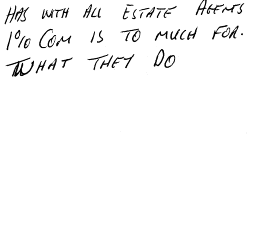 HAS WITH ALL ESTATE AGENTS
1% COM IS TO MUCH FOR.
WHAT THEY DO